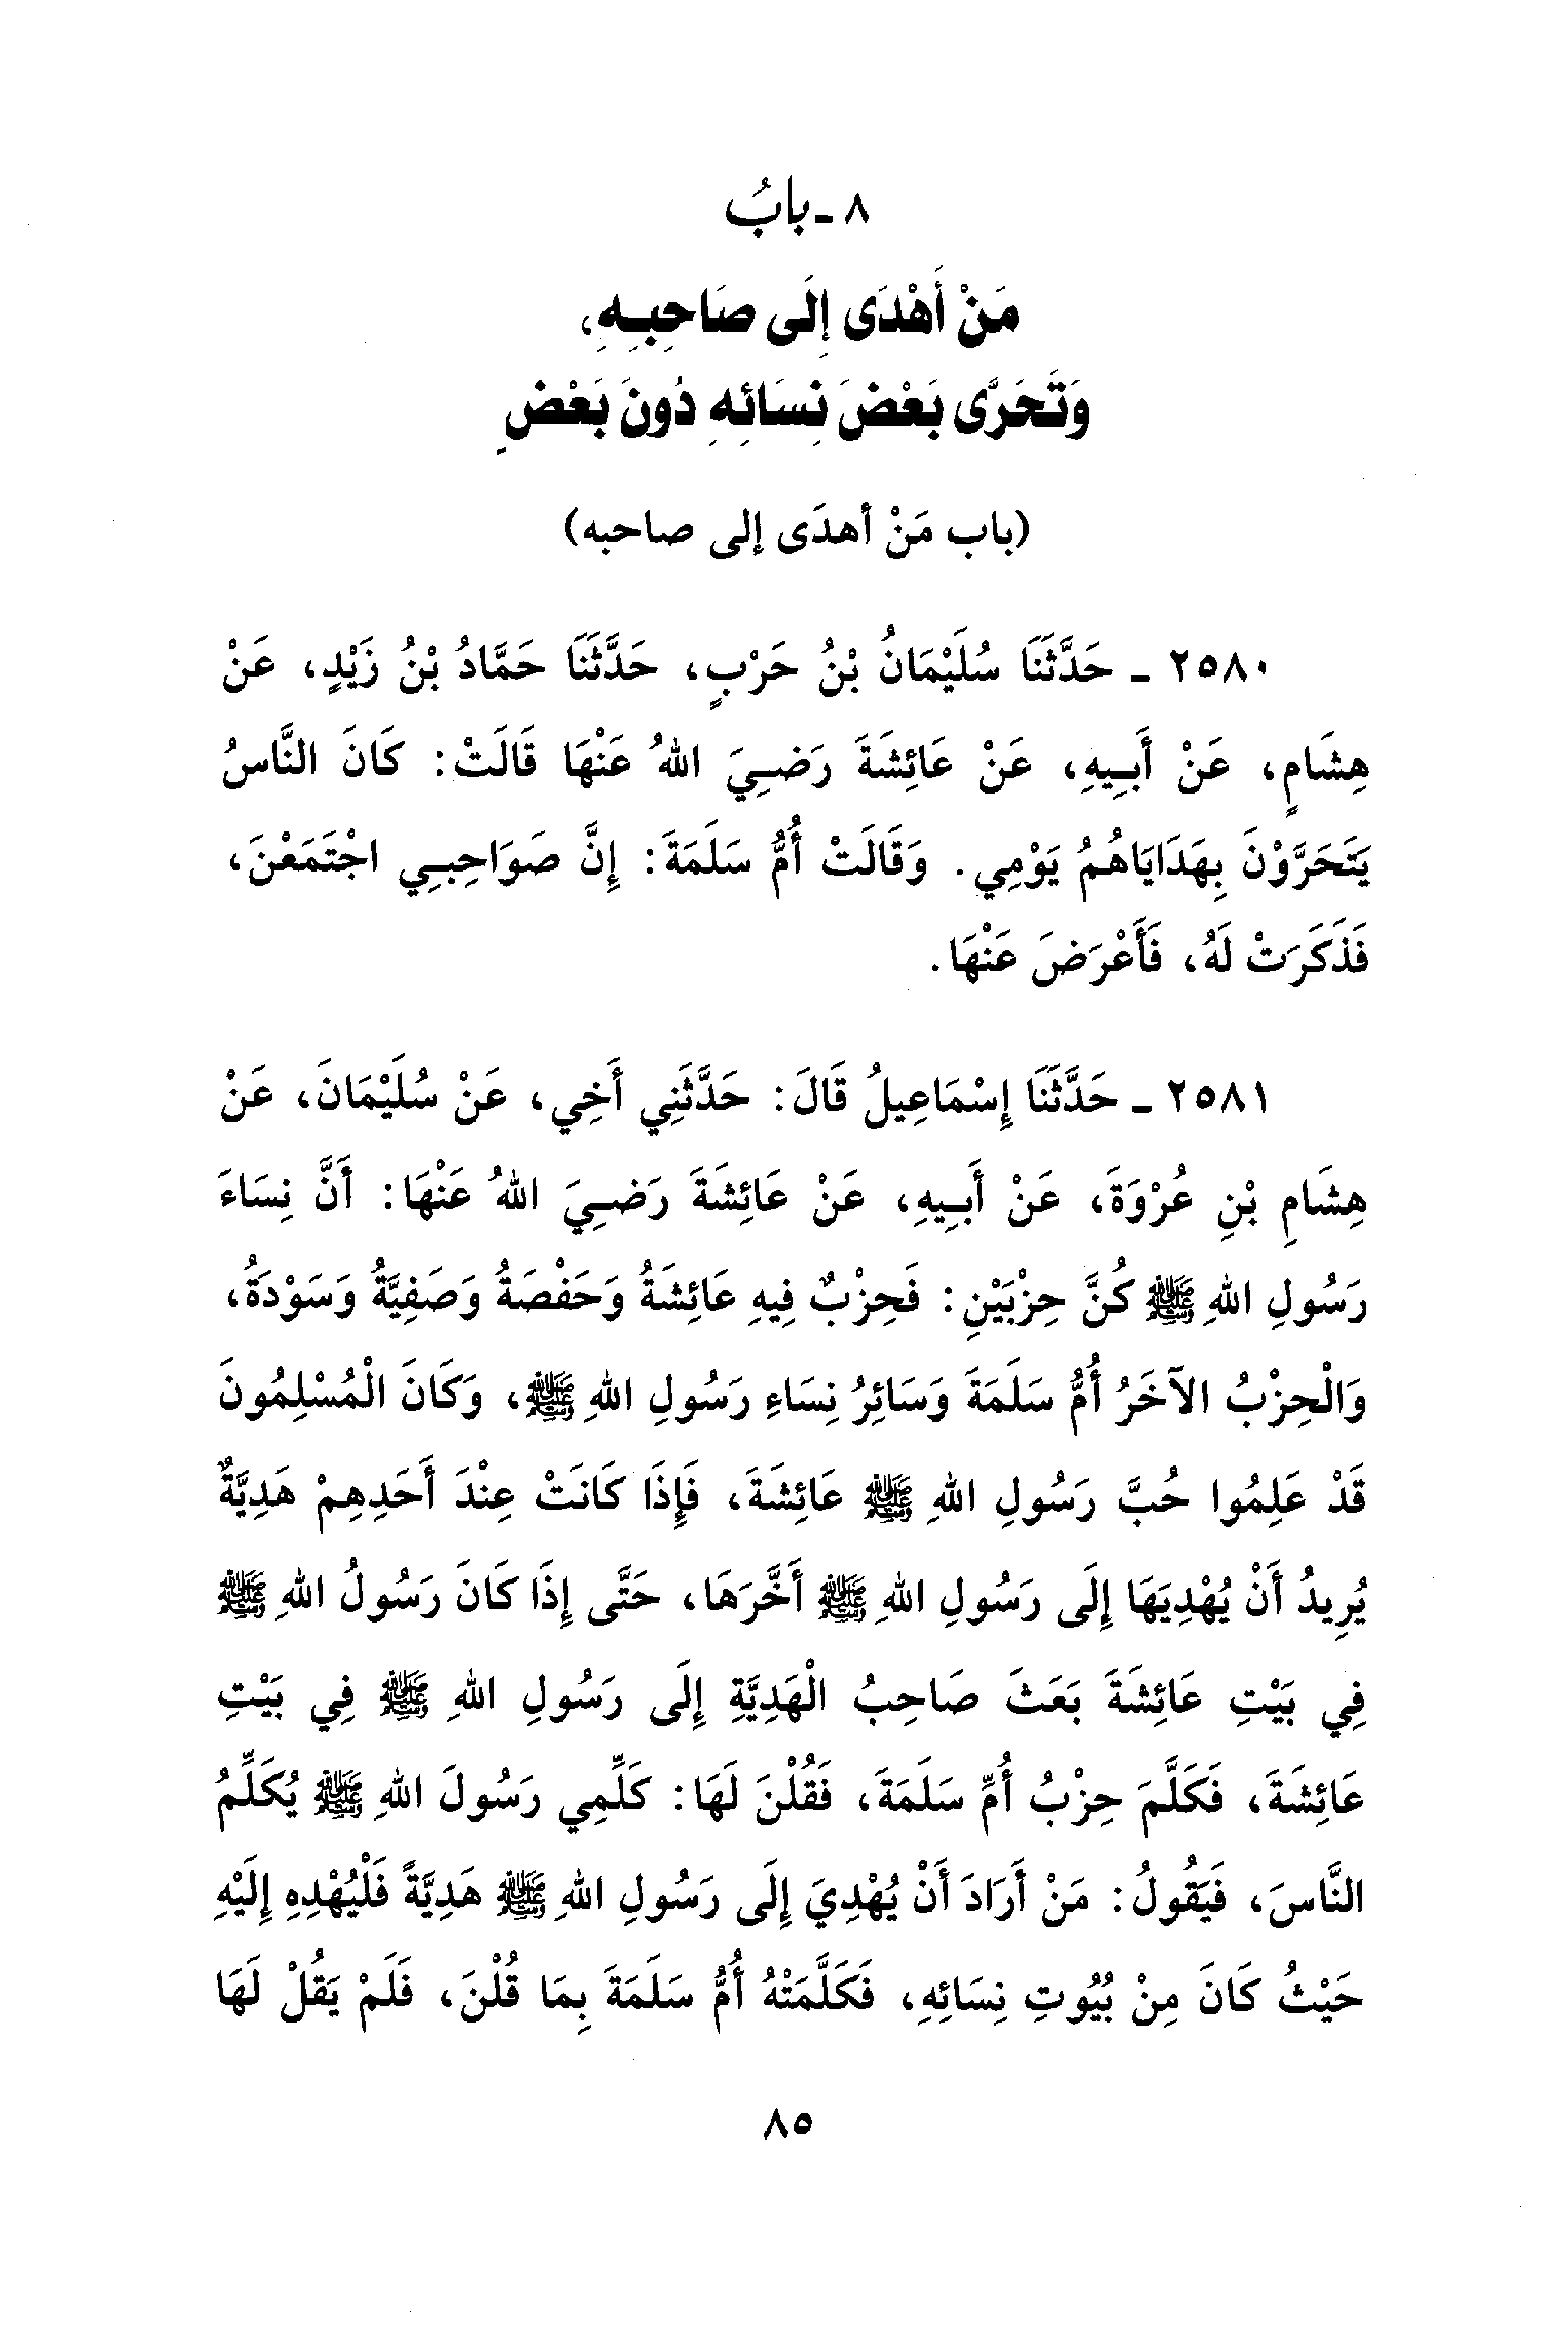 ٨ ـ بابُ
مَنْ أَهْدَى إِلَى صَاحِبِهِ،
وَتَحَرَّى بَعْضَ نِسَائِهِ دُونَ بَعْضٍ
(باب مَنْ أهدَى إلى صاحبه)
٢٥٨٠ ـ حَدَّثَنَا سُلَيْمَانُ بْنُ حَرْبٍ، حَدَّثَنَا حَمَّادُ بْنُ زَيْدٍ، عَنْ
هِشَامٍ، عَنْ أَبِيهِ، عَنْ عَائِشَةَ رَضِيَ اللهُ عَنْهَا قَالَتْ: كَانَ النَّاسُ
يَتَحَرَّوْنَ بِهَدَايَاهُمُ يَوْمِي. وَقَالَتْ أُمُّ سَلَمَةَ: إِنَّ صَوَاحِبِي اجْتَمَعْنَ،
فَذَكَرَتْ لَهُ، فَأَعْرَضَ عَنْهَا.
٢٥٨١ ـ حَدَّثَنَا إِسْمَاعِيلُ قَالَ: حَدَّثَنِي أَخِي، عَنْ سُلَيْمَانَ، عَنْ
هِشَامِ بْنِ عُرْوَةَ، عَنْ أَبِيهِ، عَنْ عَائِشَةَ رَضِيَ اللهُ عَنْهَا: أَنَّ نِسَاءَ
رَسُولِ اللهِ ﷺ كُنَّ حِزْبَيْنِ: فَحِزْبٌ فِيهِ عَائِشَةُ وَحَفْصَةُ وَصَفِيَّةُ وَسَوْدَةُ،
وَالْحِزْبُ الآخَرُ أُمُّ سَلَمَةَ وَسَائِرُ نِسَاءِ رَسُولِ اللهِ ﷺ، وَكَانَ الْمُسْلِمُونَ
قَدْ عَلِمُوا حُبَّ رَسُولِ اللهِ ﷺ عَائِشَةَ، فَإِذَا كَانَتْ عِنْدَ أَحَدِهِمْ هَدِيَّةٌ
يُرِيدُ أَنْ يُهْدِيَهَا إِلَى رَسُولِ اللهِ ﷺ أَخَّرَهَا، حَتَّى إِذَا كَانَ رَسُولُ اللهِ ﷺ
فِي بَيْتِ عَائِشَةَ بَعَثَ صَاحِبُ الْهَدِيَّةِ إِلَى رَسُولِ اللهِ ﷺ فِي بَيْتِ
عَائِشَةَ، فَكَلَّمَ حِزْبُ أُمِّ سَلَمَةَ، فَقُلْنَ لَهَا: كَلِّمِي رَسُولَ اللهِ ﷺ يُكَلِّمُ
النَّاسَ، فَيَقُولُ: مَنْ أَرَادَ أَنْ يُهْدِيَ إِلَى رَسُولِ اللهِ ﷺ هَدِيَّةً فَلْيُهْدِهِ إِلَيْهِ
حَيْثُ كَانَ مِنْ بُيُوتِ نِسَائِهِ، فَكَلَّمَتْهُ أُمُّ سَلَمَةَ بِمَا قُلْنَ، فَلَمْ يَقُلْ لَهَا
٨٥